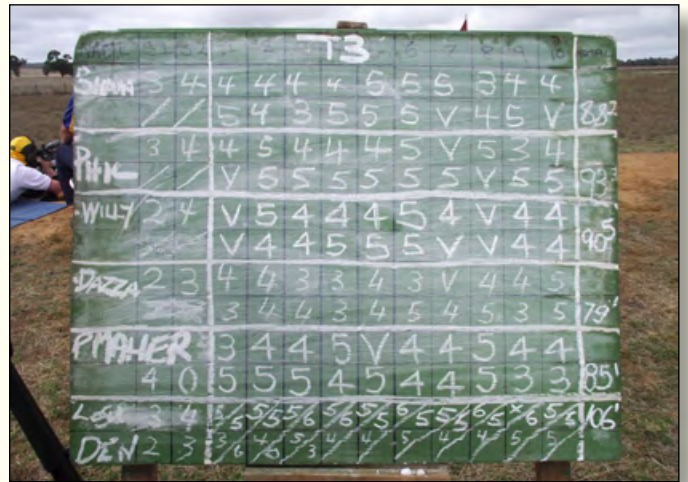 T3
3 4 4 4 4 4 5 5 5 3 4 4
/ / 5 4 3 5 5 5 V 4 5 V 88²
3 4 4 5 4 4 4 5 V 5 3 4
PHIL / / V 5 5 5 5 5 5 V 5 5 93³
WILLY 2 4 V 5 4 4 4 5 4 V 4 4
V 4 4 5 5 5 V V 4 4 90⁵
DAZZA 2 3 4 4 3 3 4 3 V 4 4 5
3 4 4 3 4 5 4 5 3 5 79'
PMAHER 3 4 4 5 V 4 4 5 4 4
4 0 5 5 5 4 5 4 4 5 3 3 85'
3 4 5/5 5/5 5/6 5/6 5/5 6/5 5/5 6/5 x/6 5/5 106'
DEN 2 3 3/6